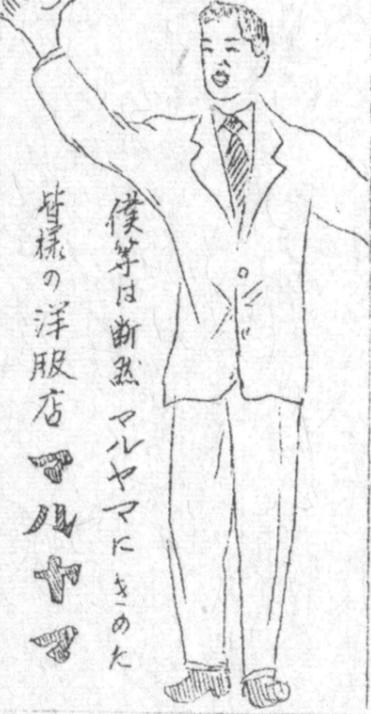 僕等は断然マルヤマにきめた
皆様の洋服店マルヤマ